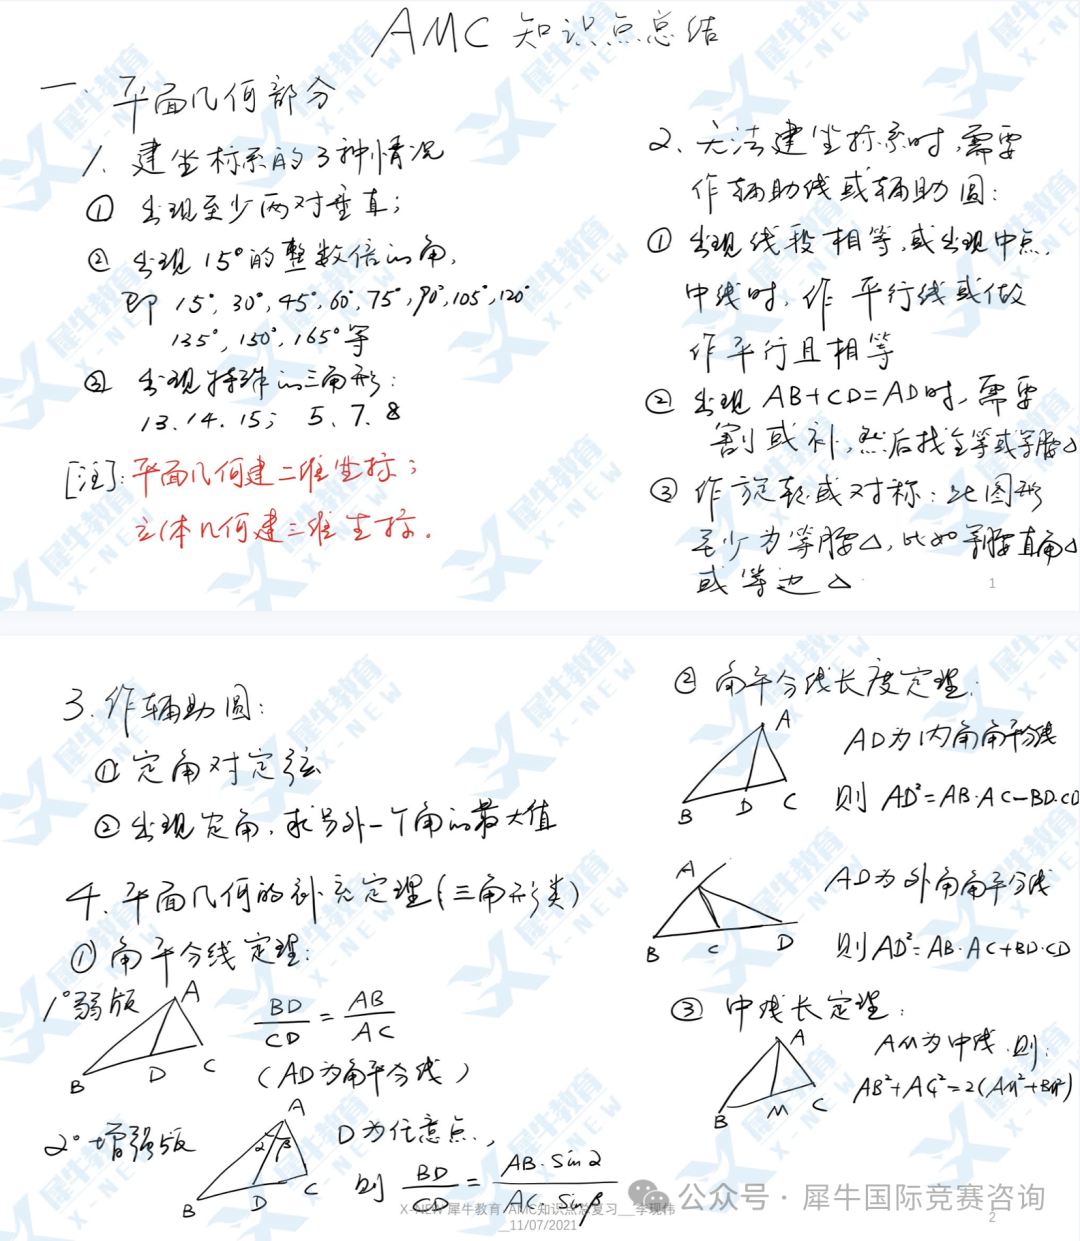 AMC 知识点总结
一、平面几何部分
1、建坐标系的3种情况
① 出现至少两对垂直;
② 出现15°的整数倍的角,
即 15°, 30°, 45°, 60°, 75°, 90°, 105°, 120°
135°, 150°, 165°等
③ 出现特殊的三角形:
13、14、15; 5、7、8
[注]: 平面几何建二维坐标;
立体几何建三维坐标。
2、无法建坐标系时,需要
作辅助线或辅助圆:
① 出现线段相等,或出现中点,
中线时,作平行线或做
作平行且相等
② 出现 AB+CD=AD时,需要
割或补,然后找全等或等腰△
③ 作旋转或对称:此图形
至少为等腰△,比如等腰直角△
或等边△
1
3、作辅助圆:
① 定角对定弦
② 出现定角,求另外一个角的最大值
4、平面几何的补充定理(三角形类)
① 角平分线定理:
1° 弱版
A
B
D
C
BD/CD = AB/AC
(AD为角平分线)
2° 增强版
A
α β
B
D
C
D为任意点,
则 BD/CD = AB·Sinα/AC·Sinβ
② 角平分线长度定理:
A
B
D
C
AD为内角角平分线
则 AD²=AB·AC-BD·CD
A
B
C
D
AD为外角角平分线
则 AD²=AB·AC+BD·CD
③ 中线长定理:
A
B
M
C
AM为中线,则:
AB²+AC²=2(AM²+BM²)
X-NEW 犀牛教育 AMC知识点总复习__李现伟
__11/07/2021
2
公众号 · 犀牛国际竞赛咨询
犀牛教育
X-NEW